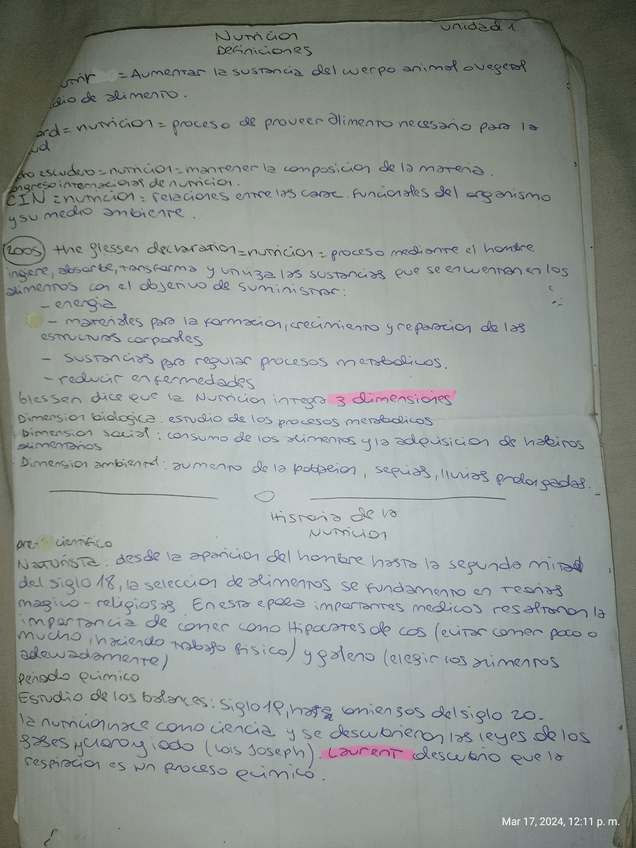 Unidad 1
Nutricion
Definiciones
= Aumentar la sustancia del cuerpo animal o vegetal
dio de alimento.
ard = nutricion = proceso de proveer alimento necesario para la
ud
ro escudero = nutricion = mantener la composicion de la materia.
ongreso internacional de nutricion.
CIN = nutricion = relaciones entre las carac. funcionales del organismo
y su medio ambiente.
2005 the glessen declaration = nutricion = proceso mediante el hombre
ingiere, absorbe, transforma y utiliza las sustancias que se encuentran en los
alimentos con el objetivo de suministrar:
- energia
- materiales para la formacion, crecimiento y reparacion de las
estructuras corporales
- sustancias para regular procesos metabolicos.
- reducir enfermedades
Glessen dice que la Nutricion integra 3 dimensiones
Dimension biologica: estudio de los procesos metabolicos
Dimension social: consumo de los alimentos y la adquisicion de habitos
alimentarios
Dimension ambiental: aumento de la poblacion, sequias, lluvias prolongadas.
Historia de la
Nutricion
pre-cientifico
Naturista: desde la aparicion del hombre hasta la segunda mitad
del siglo 18, la seleccion de alimentos se fundamento en teorias
magico-religiosas. En esta epoca importantes medicos resaltaron la
importancia de comer como Hipocrates de cos (evitar comer poco o
mucho, haciendo trabajo fisico) y galeno (elegir los alimentos
adecuadamente)
periodo quimico
Estudio de los balances: siglo 19, comienzos del siglo 20.
la nutricion nace como ciencia y se descubrieron las leyes de los
gases y cloro y iodo (Lois Joseph). Laurent descubrio que la
respiracion es un proceso quimico.
Mar 17, 2024, 12:11 p. m.